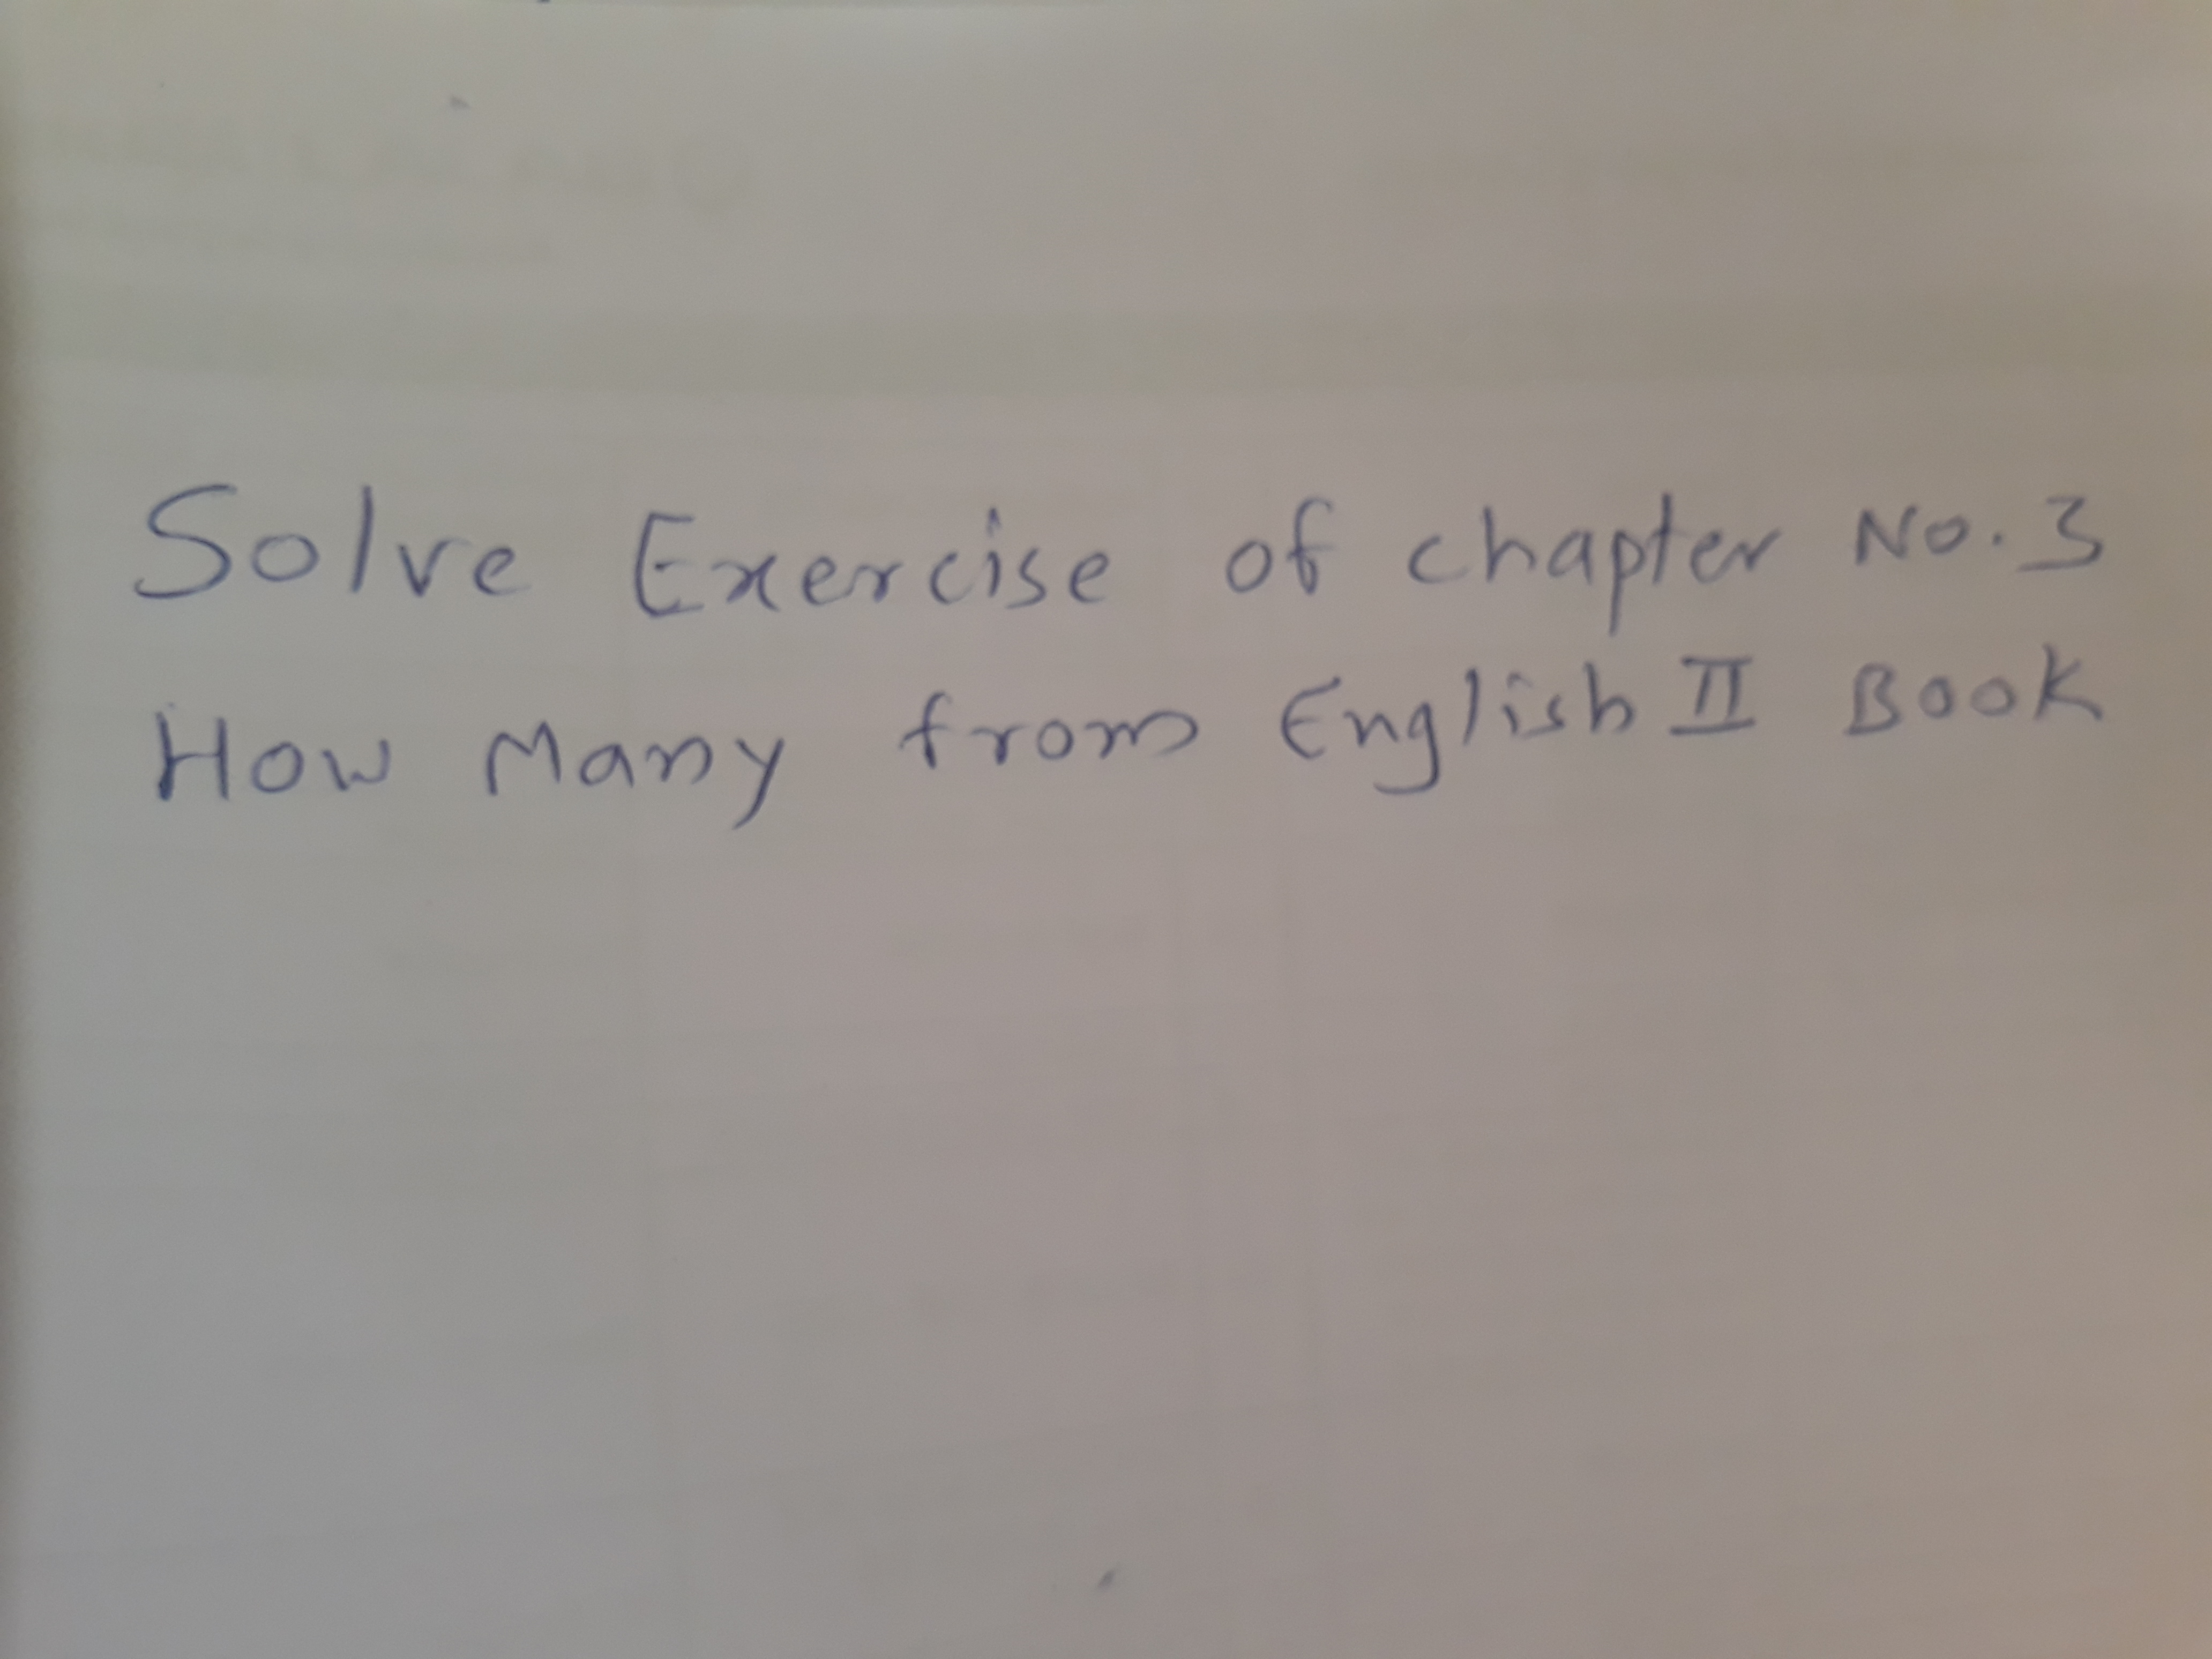 Solve Exercise of chapter No. 3
How Many from English II Book